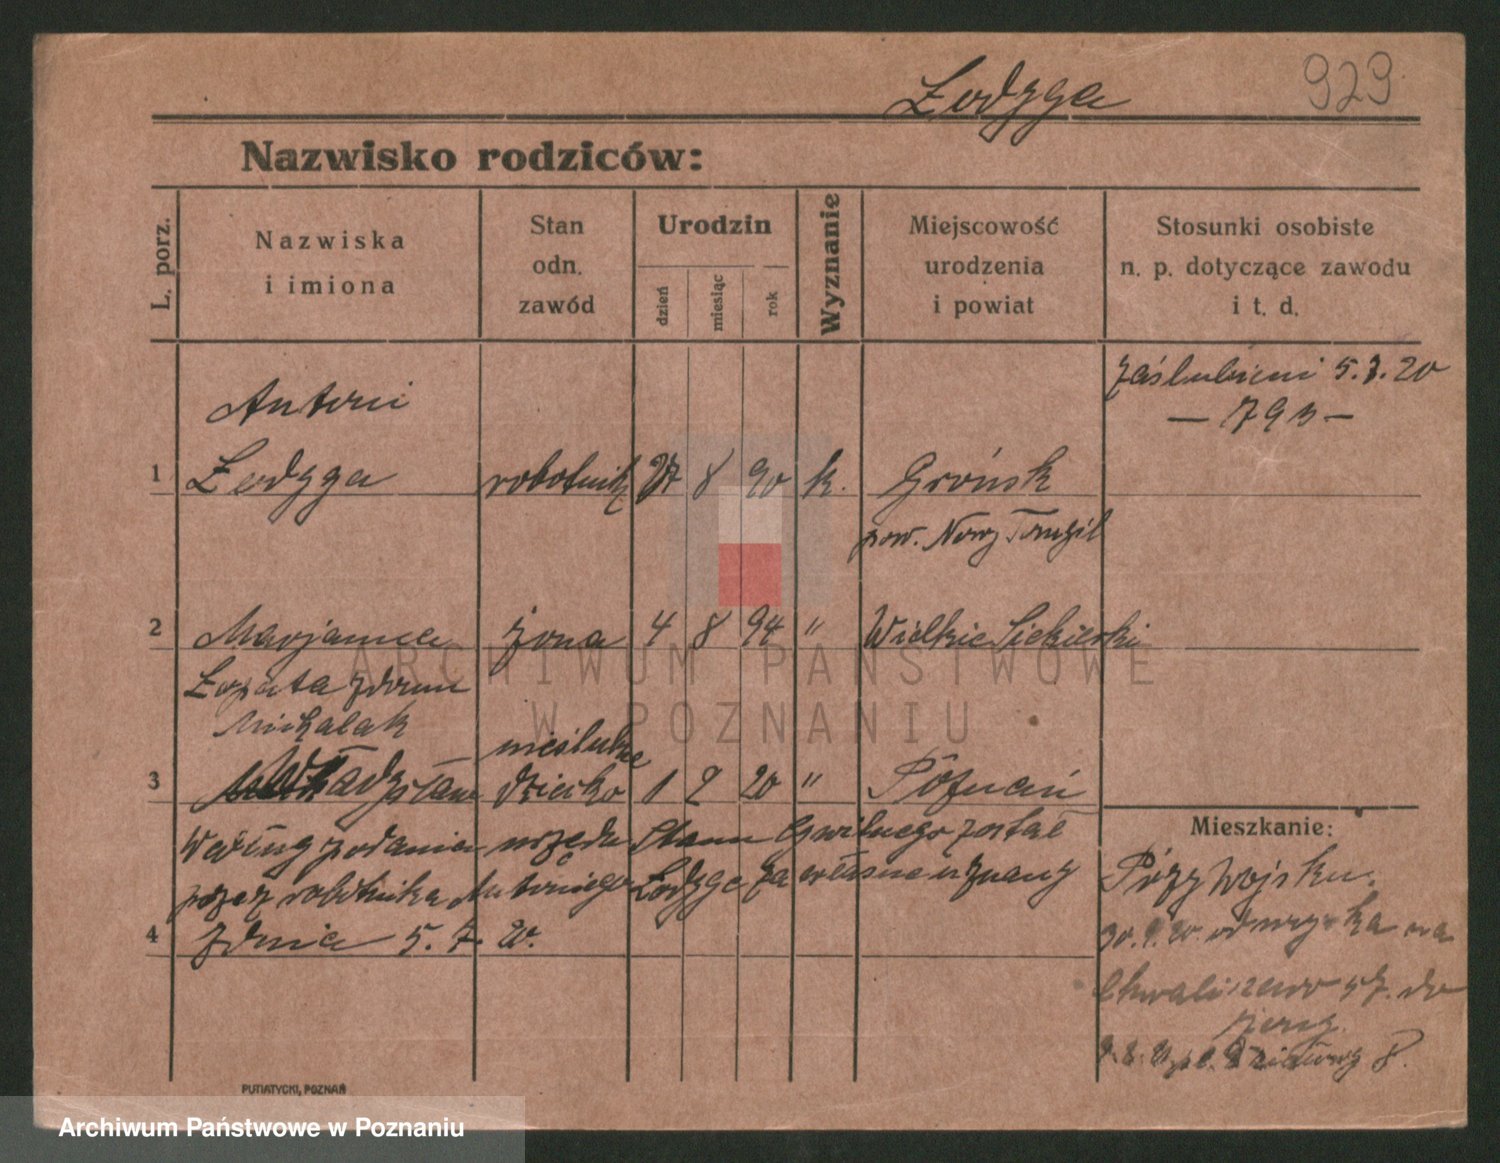 Łodzga 929
Nazwisko rodziców:
L. porz.
Nazwiska
i imiona
Stan
odn.
zawód
Urodzin
dzień
miesiąc
rok
Wyznanie
Miejscowość
urodzenia
i powiat
Stosunki osobiste
n. p. dotyczące zawodu
i t. d.
zaślubieni 5. 7. 20
Antoni
1 Łodzga robotnik 27 8 90 k. Grońsk
pow. Nowy Tomyśl
2 Marjanna żona 4 8 94 " Wielkie
Łopata zdomu
Michalak
nieślubne
3 Władysław dziecko 1 2 20 " Poznań
Według podania urzędu Stanu Cywilnego został
przez robotnika Antoniego Łodzgę za własne uznany
4 zdnia 5. 7. 20.
Mieszkanie:
Przy Wojsku.
30. 9. 20.
Chwaliszewo 57.
8.
PUTIATYCKI, POZNAŃ
ARCHIWUM PAŃSTWOWE
W POZNANIU
Archiwum Państwowe w Poznaniu